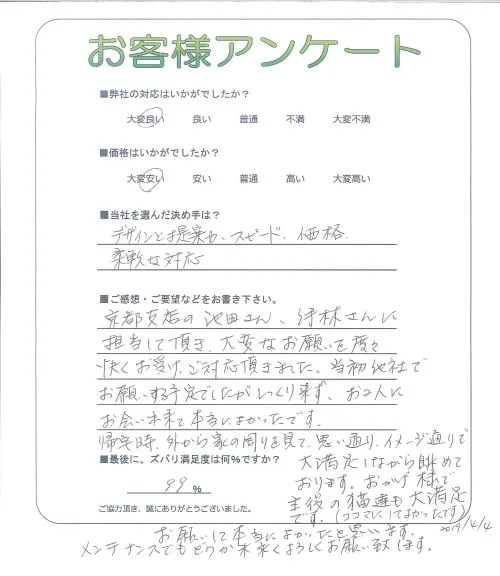 お客様アンケート
■弊社の対応はいかがでしたか？
大変良い 良い 普通 不満 大変不満
■価格はいかがでしたか？
大変安い 安い 普通 高い 大変高い
■当社を選んだ決め手は？
デザインと提案力、スピード、価格、
柔軟な対応
■ご感想・ご要望などをお書き下さい。
京都支店の池田さん、竹林さんに
担当して頂き、大変なお願いを度々
快くお受け、ご対応頂きました。当初他社で
お願いする予定でしたがしっくり来ず、お2人に
お会い出来て本当によかったです。
帰宅時、外から家の周りを見て、思い通り、イメージ通りで
大満足しながら眺めて
おります。おかげ様で
主役の猫達も大満足
です。(ココマにしてよかったです)
■最後に、ズバリ満足度は何％ですか？
99 %
ご協力頂き、誠にありがとうございました。
2019/4/4
お願いして本当によかったと思います。
メンテナンスでもどうか末永くよろしくお願い致します。